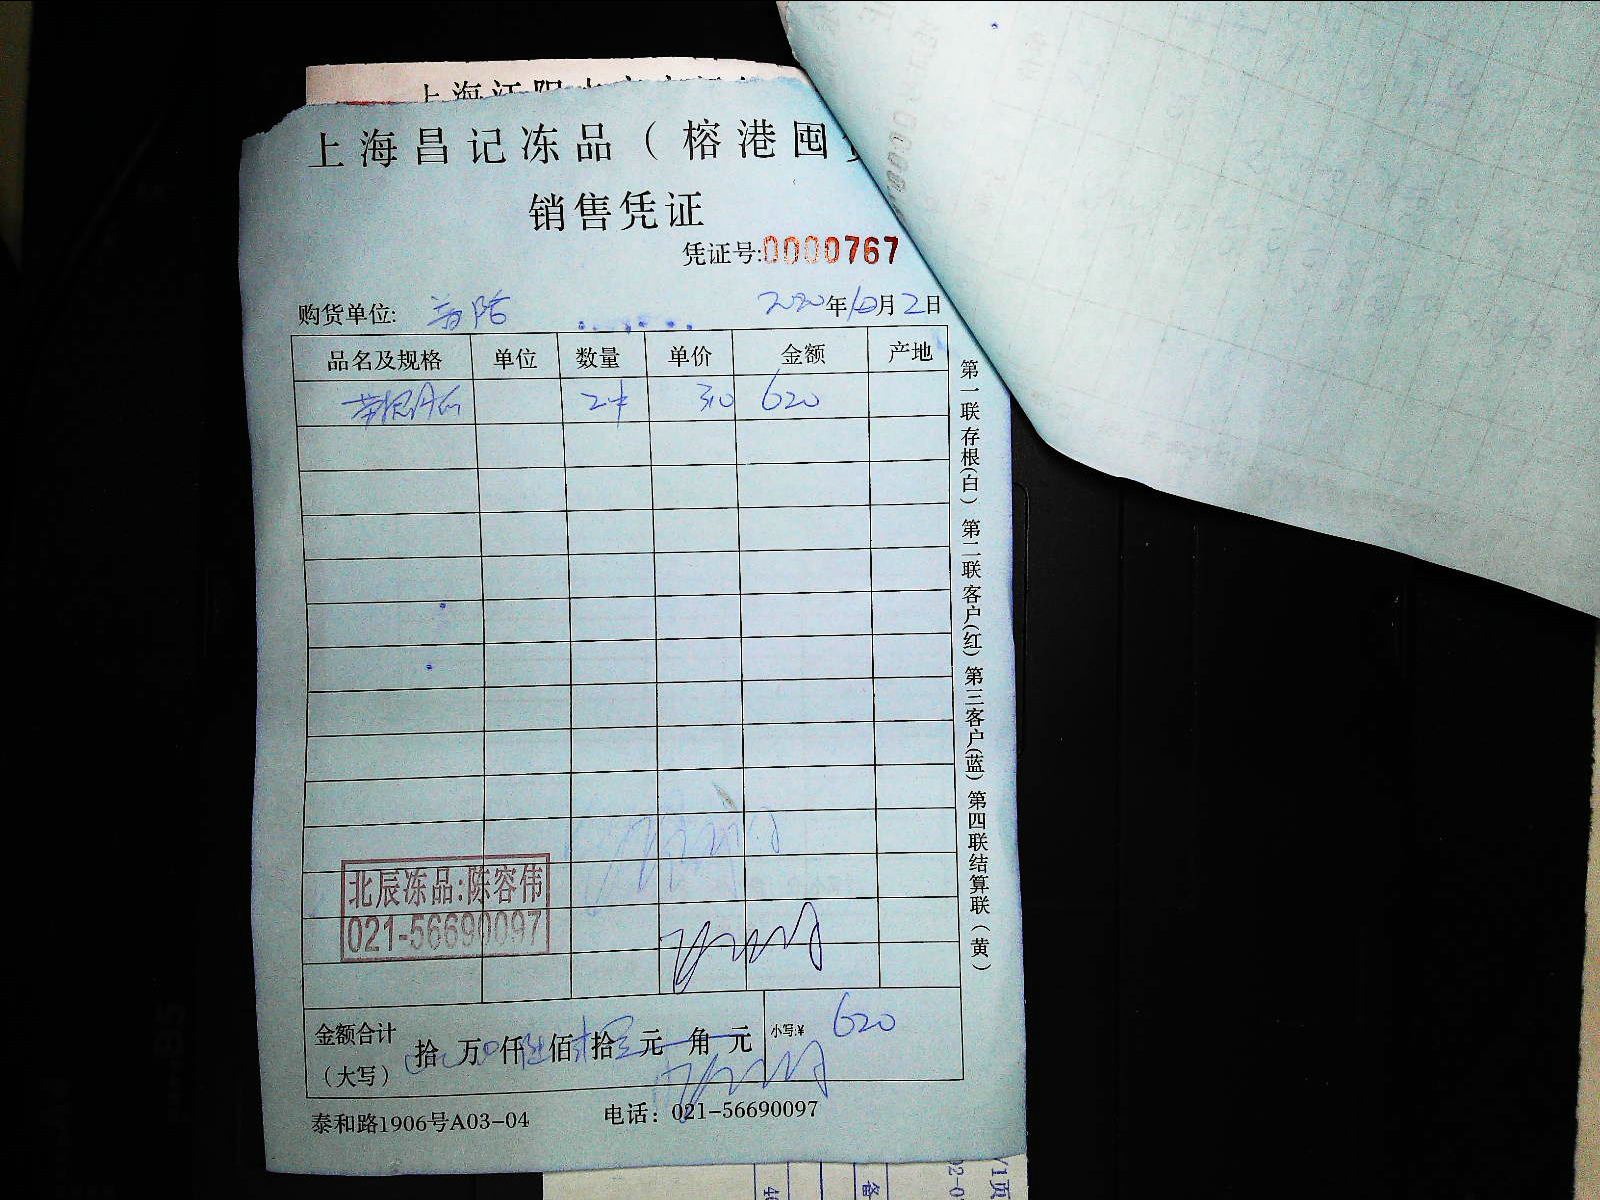 上海
上海昌记冻品（榕港囤
销售凭证
凭证号:0000767
购货单位:
2020年10月2日
品名及规格 单位 数量 单价 金额 产地
2件 310 620
第一联存根(白) 第二联客户(红) 第三客户(蓝) 第四联结算联(黄)
北辰冻品:陈容伟
021-56690097
金额合计（大写） 拾 万 仟 佰 拾 元 角 元 小写:¥ 620
泰和路1906号A03-04 电话：021-56690097